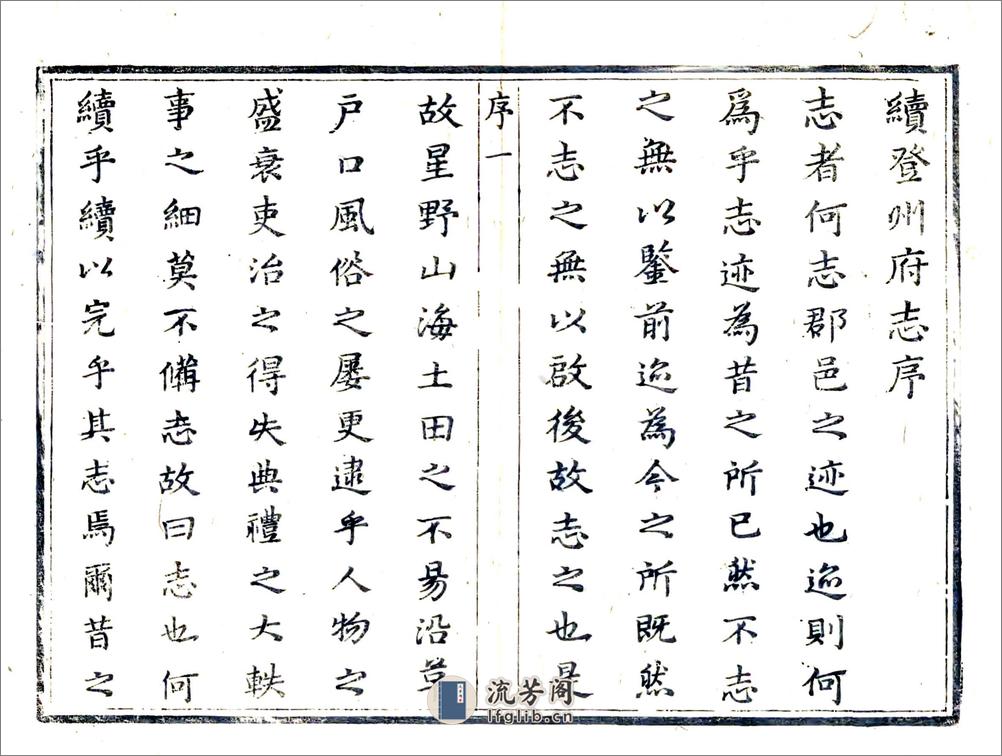 續登州府志序
志者何志郡邑之迹也迹則何
爲乎志迹為昔之所已然不志
之無以鑒前迹為今之所既然
不志之無以啟後故志之也是
序 一
故星野山海土田之不易沿革
戶口風俗之屡更逮乎人物之
盛衰吏治之得失典禮之大軼
事之細莫不備志故曰志也何
續乎續以完乎其志焉爾昔之
流芳阁
lfglib.cn